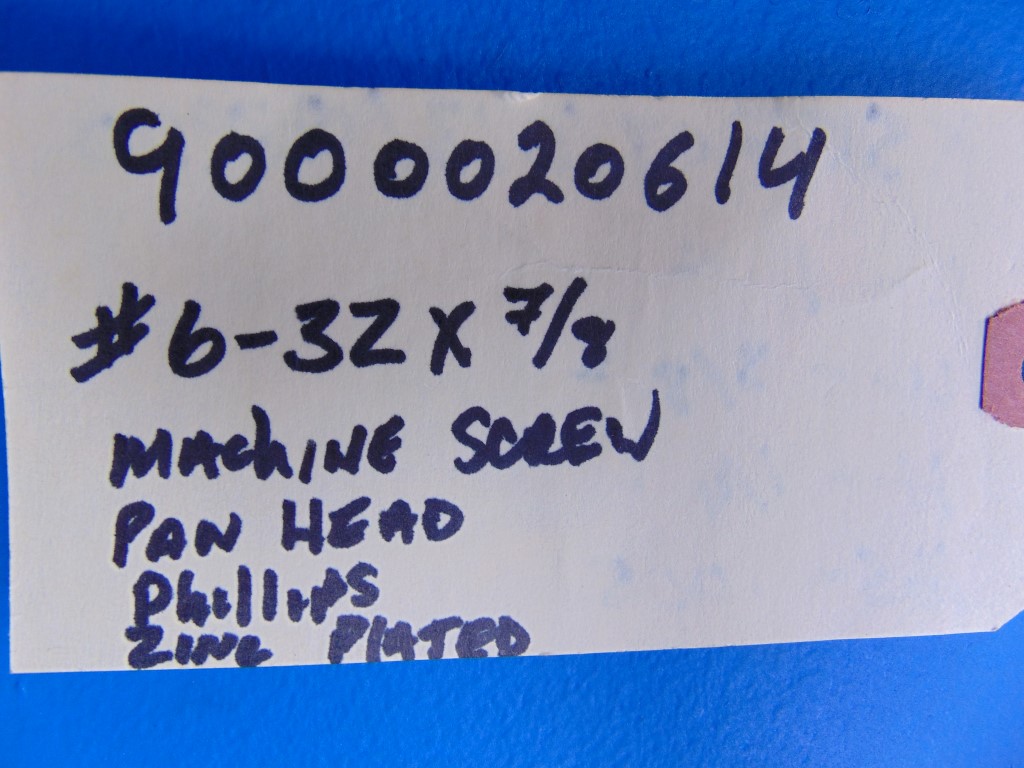 9000020614
#6-32 X 7/8
MACHINE SCREW
PAN HEAD
Phillips
ZINC PLATED